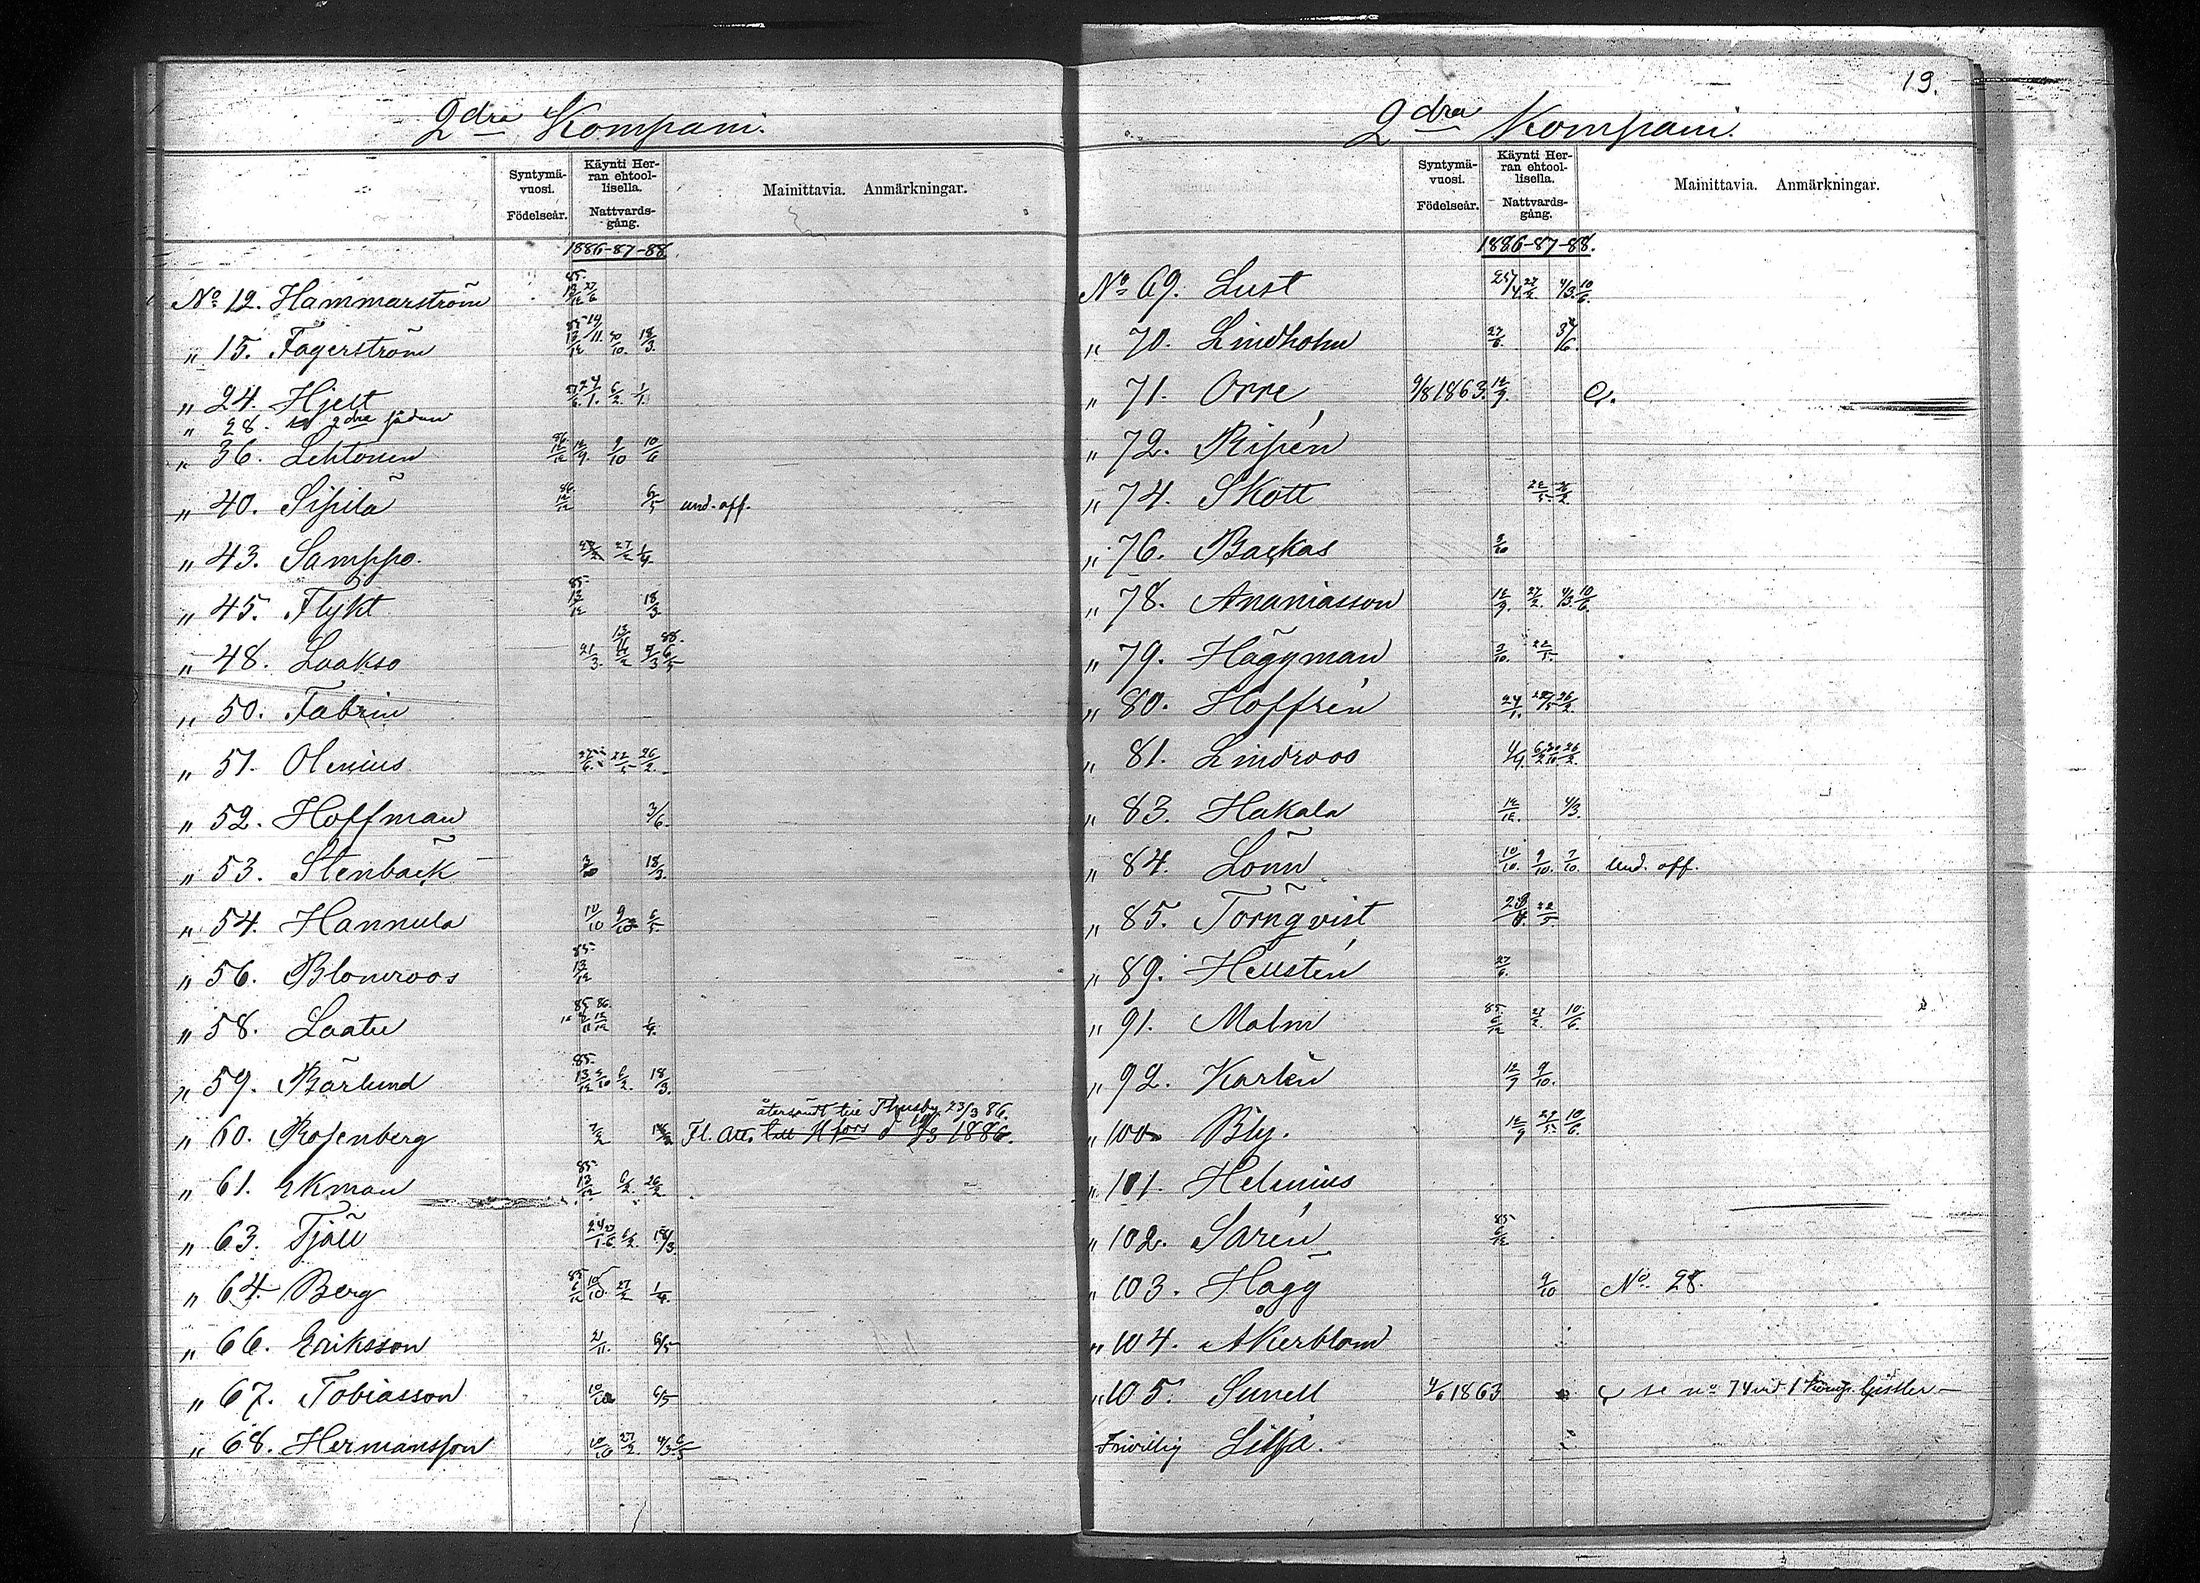 2dra Kompani.
Syntymä-vuosi. Födelseår.
Käynti Herran ehtoollisella. Nattvardsgång.
Mainittavia. Anmärkningar.
1886-87-88.
No 12. Hammarström 85. 13/12 27/6
" 15. Fagerström 85 13/12 14/11. 30/10. 18/3.
" 24. Hjelt 27/6. 24/1. 6/2. 1/1.
" 28. 2dra sidan
" 36. Lehtonen 86. 12/12 12/9. 9/10 10/6
" 40. Sipilä 86. 12/12 6/5 und. off.
" 43. Samppo. 27/2 1/4.
" 45. Flykt 85. 13/12 18/3
" 48. Laakso 21/3. 4/3 88. 6/5
" 50. Fabrin
" 51. Olenius 27/6. 22/5 26/2.
" 52. Hoffman 3/6.
" 53. Stenbäck 3/10 18/3.
" 54. Hannula 10/10 9/10 6/5
" 56. Blomroos 85. 13/12
" 58. Laatu 85 86. 12/12 1/4.
" 59. Bärlund 85. 13/12 3/10 6/2. 18/3.
återsändt till Thusby 23/3 86.
" 60. Rosenberg 7/2 Fl. Att. till Hfors d 19/3 1886.
" 61. Ekman 85. 13/12 6/2. 26/2
" 63. Fjäll 24/1 27/6 6/2. 18/3.
" 64. Berg 85 6/12 10/10. 27/2 1/4.
" 66. Eriksson 21/11. 6/5
" 67. Tobiasson 10/10 6/5
" 68. Hermansson 10/10 27/2 4/3 6/5
19.
2dra Kompani.
Syntymä-vuosi. Födelseår.
Käynti Herran ehtoollisella. Nattvardsgång.
Mainittavia. Anmärkningar.
1886-87-88.
No 69. Lust 25/4 27/2 4/3. 10/6.
" 70. Lindholm 27/6. 3/6.
" 71. Orre 9/8 1863. 12/9.
" 72. Ripén
" 74. Skott 22/5 26/2
" 76. Backas 3/10
" 78. Ananiasson 12/9. 27/2. 4/3. 10/6.
" 79. Häggman 3/10. 22/5.
" 80. Hoffrén 24/1. 22/5 26/2.
" 81. Lindroos 4/4. 6/2 30/10 26/2.
" 83. Hakala 12/12. 4/3.
" 84. Lönn 10/10. 9/10. 7/10. Und. off.
" 85. Törnqvist 22/5.
" 89. Hellstén 27/6.
" 91. Malm 85. 6/12 27/2. 10/6
" 92. Karlén 12/9 9/10.
" 100. Bly. 12/9 22/5. 10/6.
" 101. Helenius
" 102. Sarén 85 6/12
" 103. Hägg 9/10 No 28.
" 104. Åkerblom
" 105. Sunell 4/6 1863 se no 74 vid 1 Komp. Gistler
Frivillig Lilja.